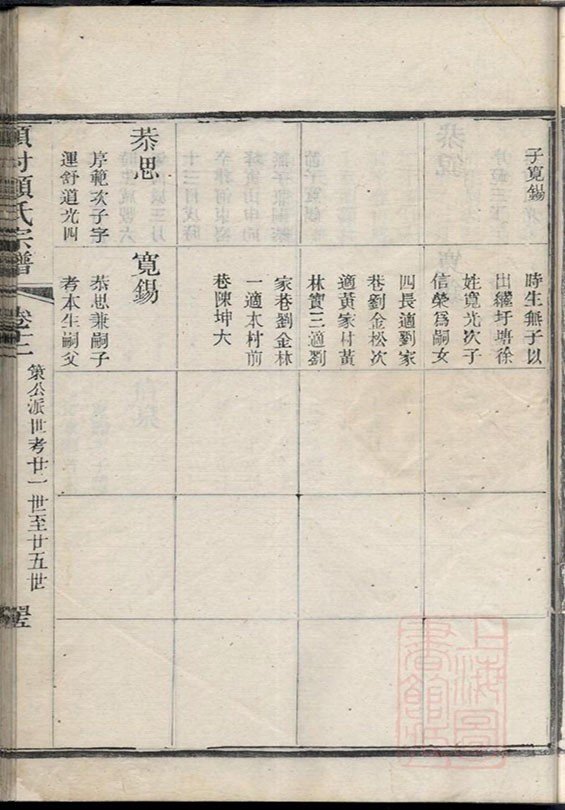 子寬錫
時生無子以
出繼圩塘徐
姓寬光次子
信榮爲嗣女
四長適劉家
巷劉金松次
適黃家村黃
林寶三適劉
家巷劉金林
一適本村前
巷陳坤大
恭思
序範次子字
運舒道光四
寬錫
恭思兼嗣子
考本生嗣父
項村項氏宗譜
策公派世考廿一世至廿五世
上海圖書館藏